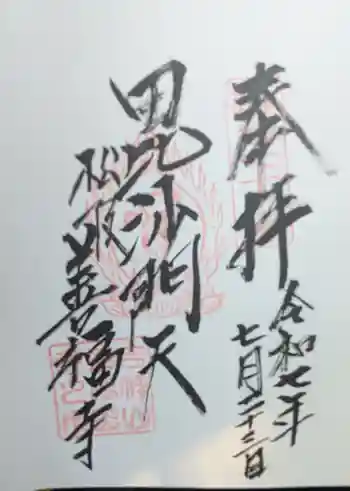 奉拝
令和七年
七月二十三日
毘沙門天
松阪
善福寺